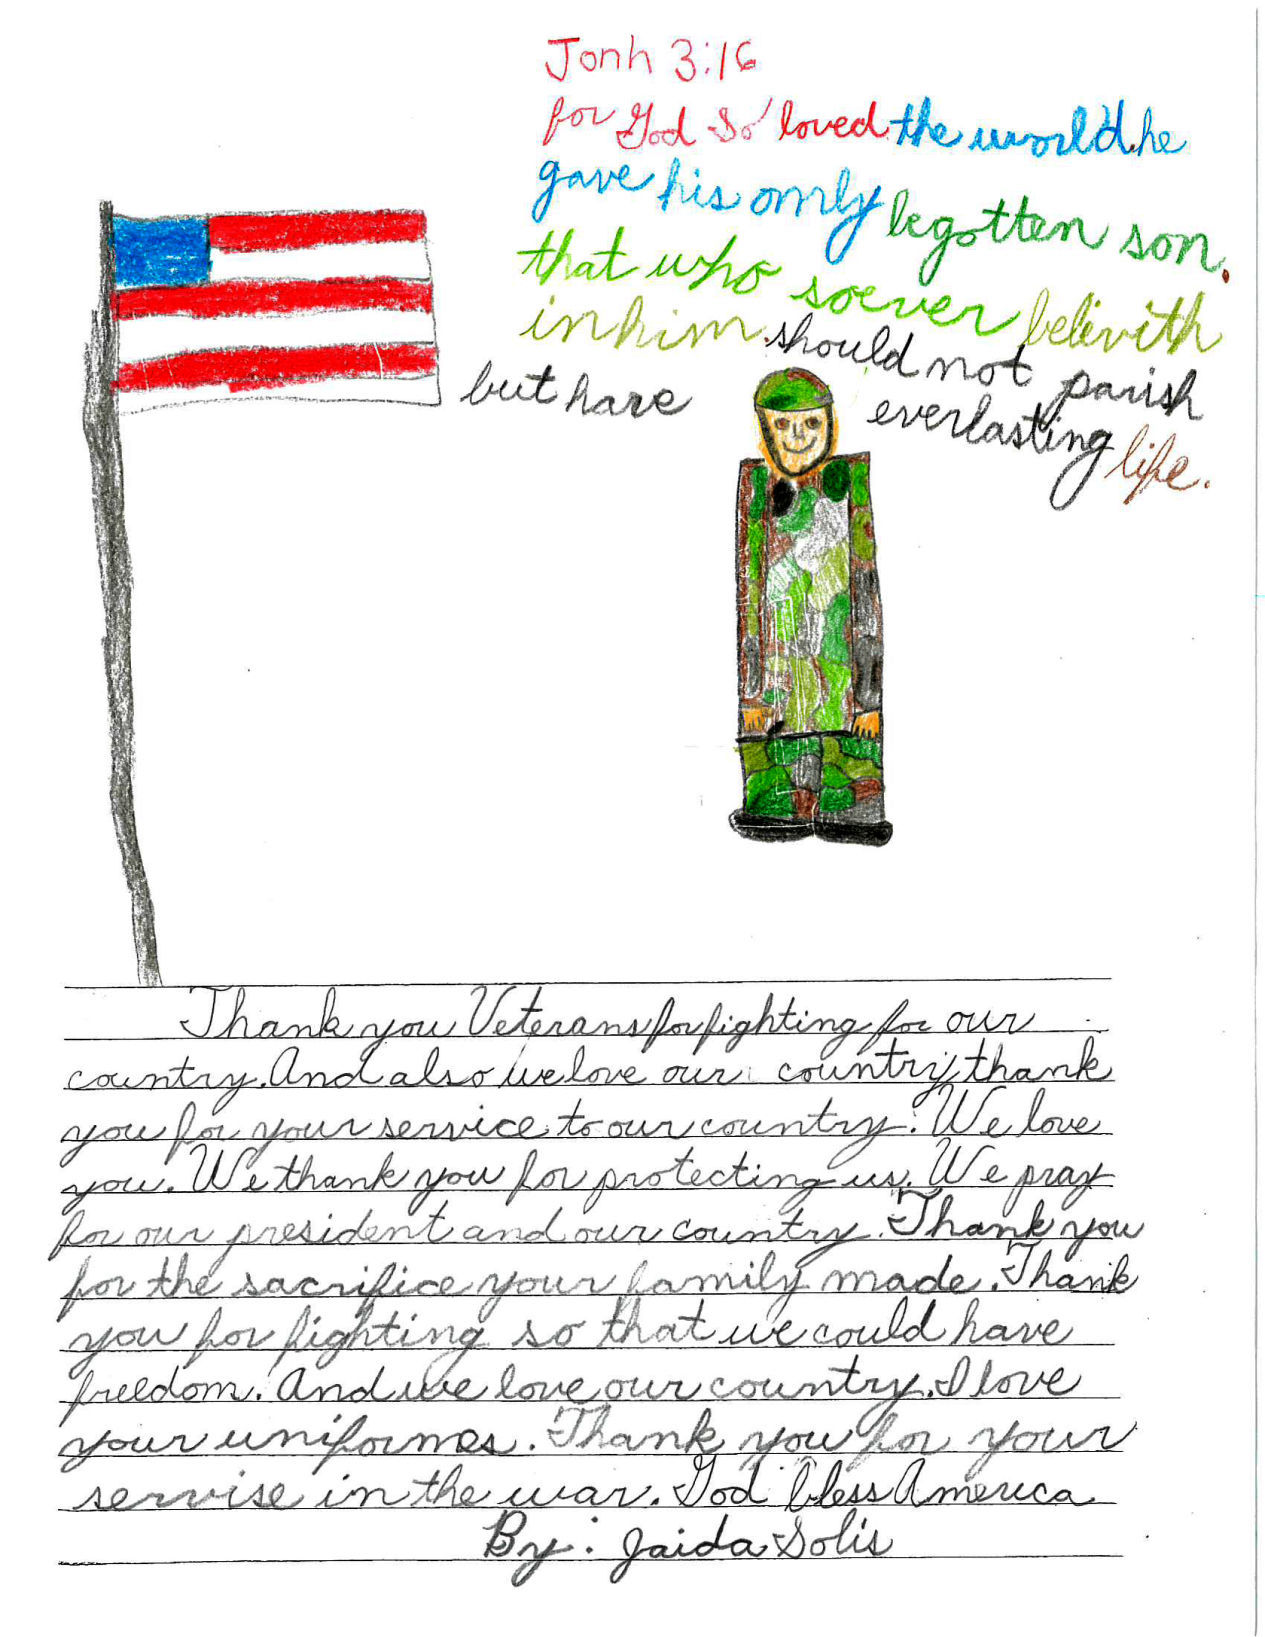 Jonh 3:16
for God so loved the world.he
gave his only begotten son.
that who soever belivith
in him.should not parish
but have everlasting life.
Thank you Veterans for fighting for our
country. And also we love our country, thank
you for your service to our country. We love
you. We thank you for protecting us. We pray
for our president and our country. Thank you
for the sacrifice your family made. Thank
you for fighting so that we could have
freedom. And we love our country. I love
your uniformes. Thank you for your
servise in the war. God bless America
By: Jaida Solis